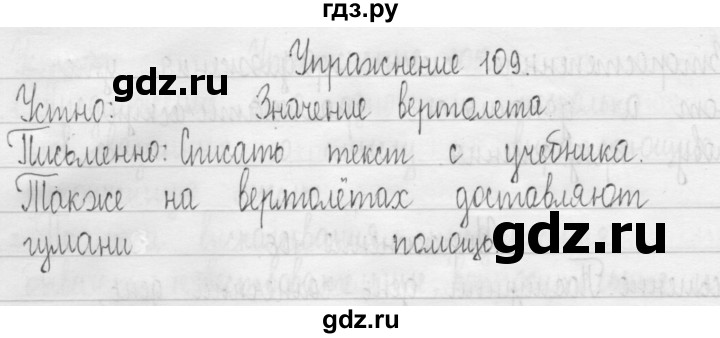 гдз.ру
Упражнение 109.
gdz.ru
Устно: Значение вертолета
Письменно: Списать текст с учебника.
Также на вертолётах доставляют
гумани помощь
gdz.ru
gdz.ru